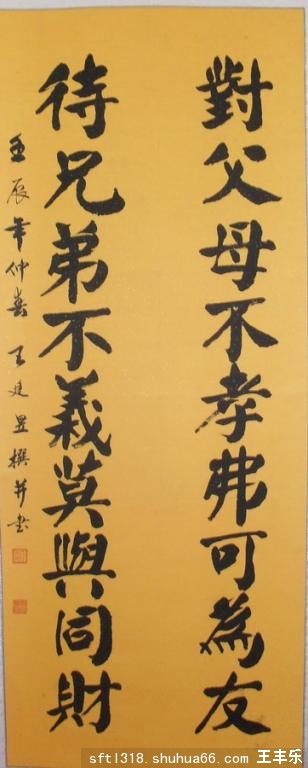 對父母不孝弗可為友
待兄弟不義莫與同財
壬辰年仲春 王廷昱撰並書
sftl318.shuhua66.com 王丰乐